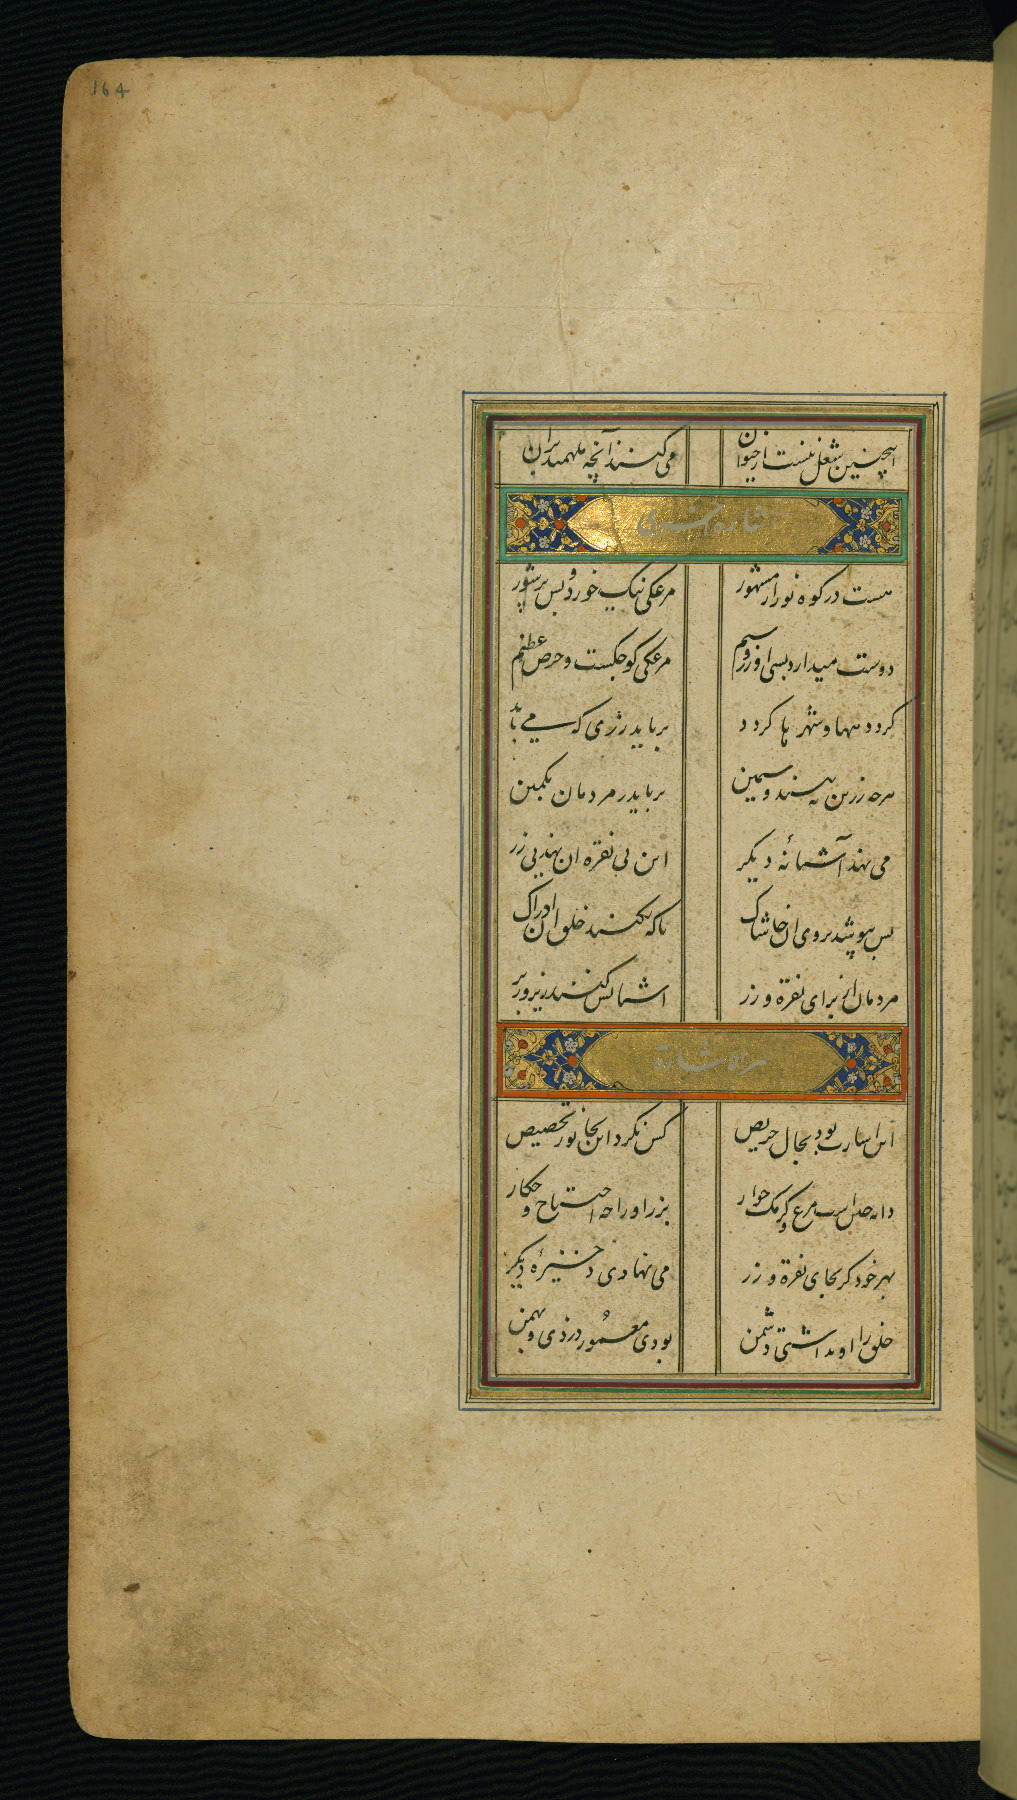 164
اینچنین شغل نیست از حیوان می کنند آنچه ملهمند بران
اشاره اخری
هست در کوه نور ار مشهور مرغکی نیک خورد و بس پر شور
دوست میدارد بسی او زر و سیم مرغکی کوچکست و حرص عظیم
کرد دهها و شهر ها کردد برباید زری که می یابد
هر چه زرین به بیند و سیمین برباید ز مردمان بکمین
می نهد آشیانه دیکر این پی نقره ان نهد پی زر
پس بپوشد بروی ان خاشاک تا که نکنند خلق ان ادراک
مردمان از برای نقره و زر اشیانش کنند زیر و زبر
این اشارت بود بحال حریص کس نکرد این بجانور تخصیص
دانه چین است مرغ و کرمک خوار بزر او را چه احتیاج و چکار
بهر خود کر بجای نقره و زر می نهادی ذخیرهٔ دیکر
خلق را او نداشتی دشمن بودی معمور در دی و بهمن